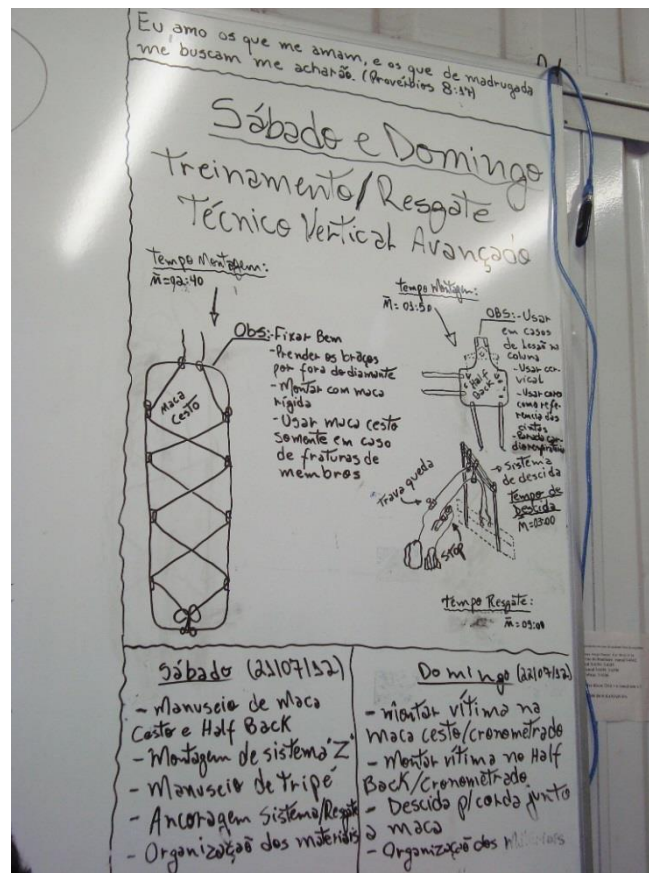 Eu amo os que me amam, e os que de madrugada
me buscam me acharão. (Provérbios 8:17)
Sábado e Domingo
Treinamento/Resgate
Técnico Vertical Avançado
Tempo Montagem:
M=02:40
Obs:-Fixar Bem
-Prender os braços
por fora do diamante
-Montar com maca
rígida
-Usar maca cesto
somente em caso
de fraturas de
membros
Maca
Cesto
Tempo Montagem:
M=03:50
OBS:-Usar
em casos
de Lesão na
coluna
-Usar cer-
vical
-Usar
como refe-
rencia dos
cintos
Half
Back
→Sistema
de descida
Tempo de
Descida
M=03:00
Trava queda
STOP
Tempo Resgate:
M=09:00
Sábado (21/07/12)
- Manuseio de Maca
Cesto e Half Back
- Montagem de sistema "Z"
- Manuseio de Tripé
- Ancoragem Sistema/Resgate
- Organização dos materiais
Domingo (22/07/12)
- Montar vítima na
maca cesto/cronometrado
- Montar vítima no Half
Back/Cronometrado
- Descida p/corda junto
a maca
- Organização dos Materiais